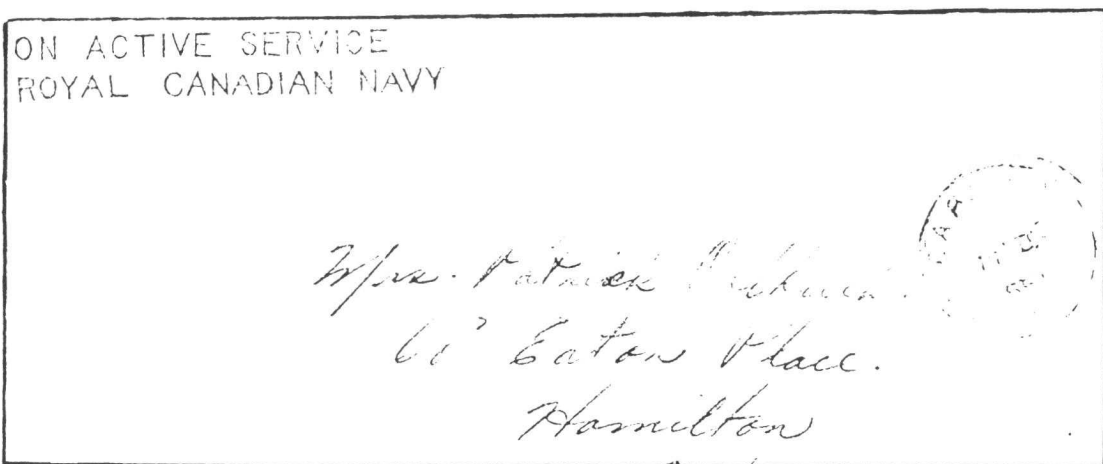 ON ACTIVE SERVICE
ROYAL CANADIAN NAVY
Mrs. Patrick
Eaton Place.
Hamilton